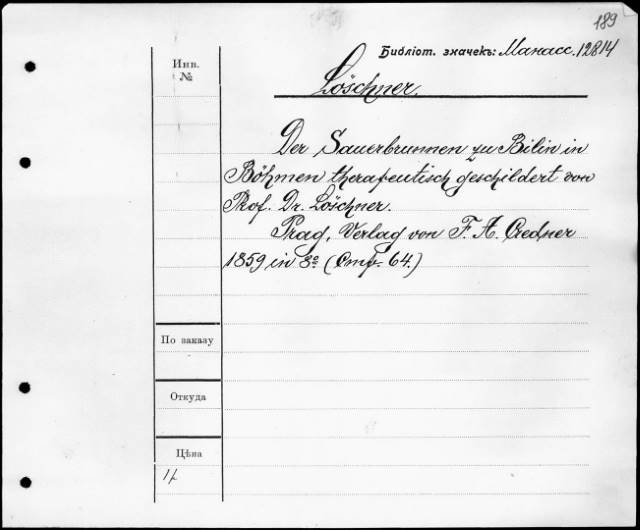 189
Библіот. значекъ: Манасс. 12814
Инв.
№
Löschner.
Der Sauerbrunnen zu Bilin in
Böhmen therapeutisch geschildert von
Prof. Dr. Löschner.
Prag, Verlag von F. A. Credner
1859 in 8º (Стр. 64.)
По заказу
Откуда
Цѣна